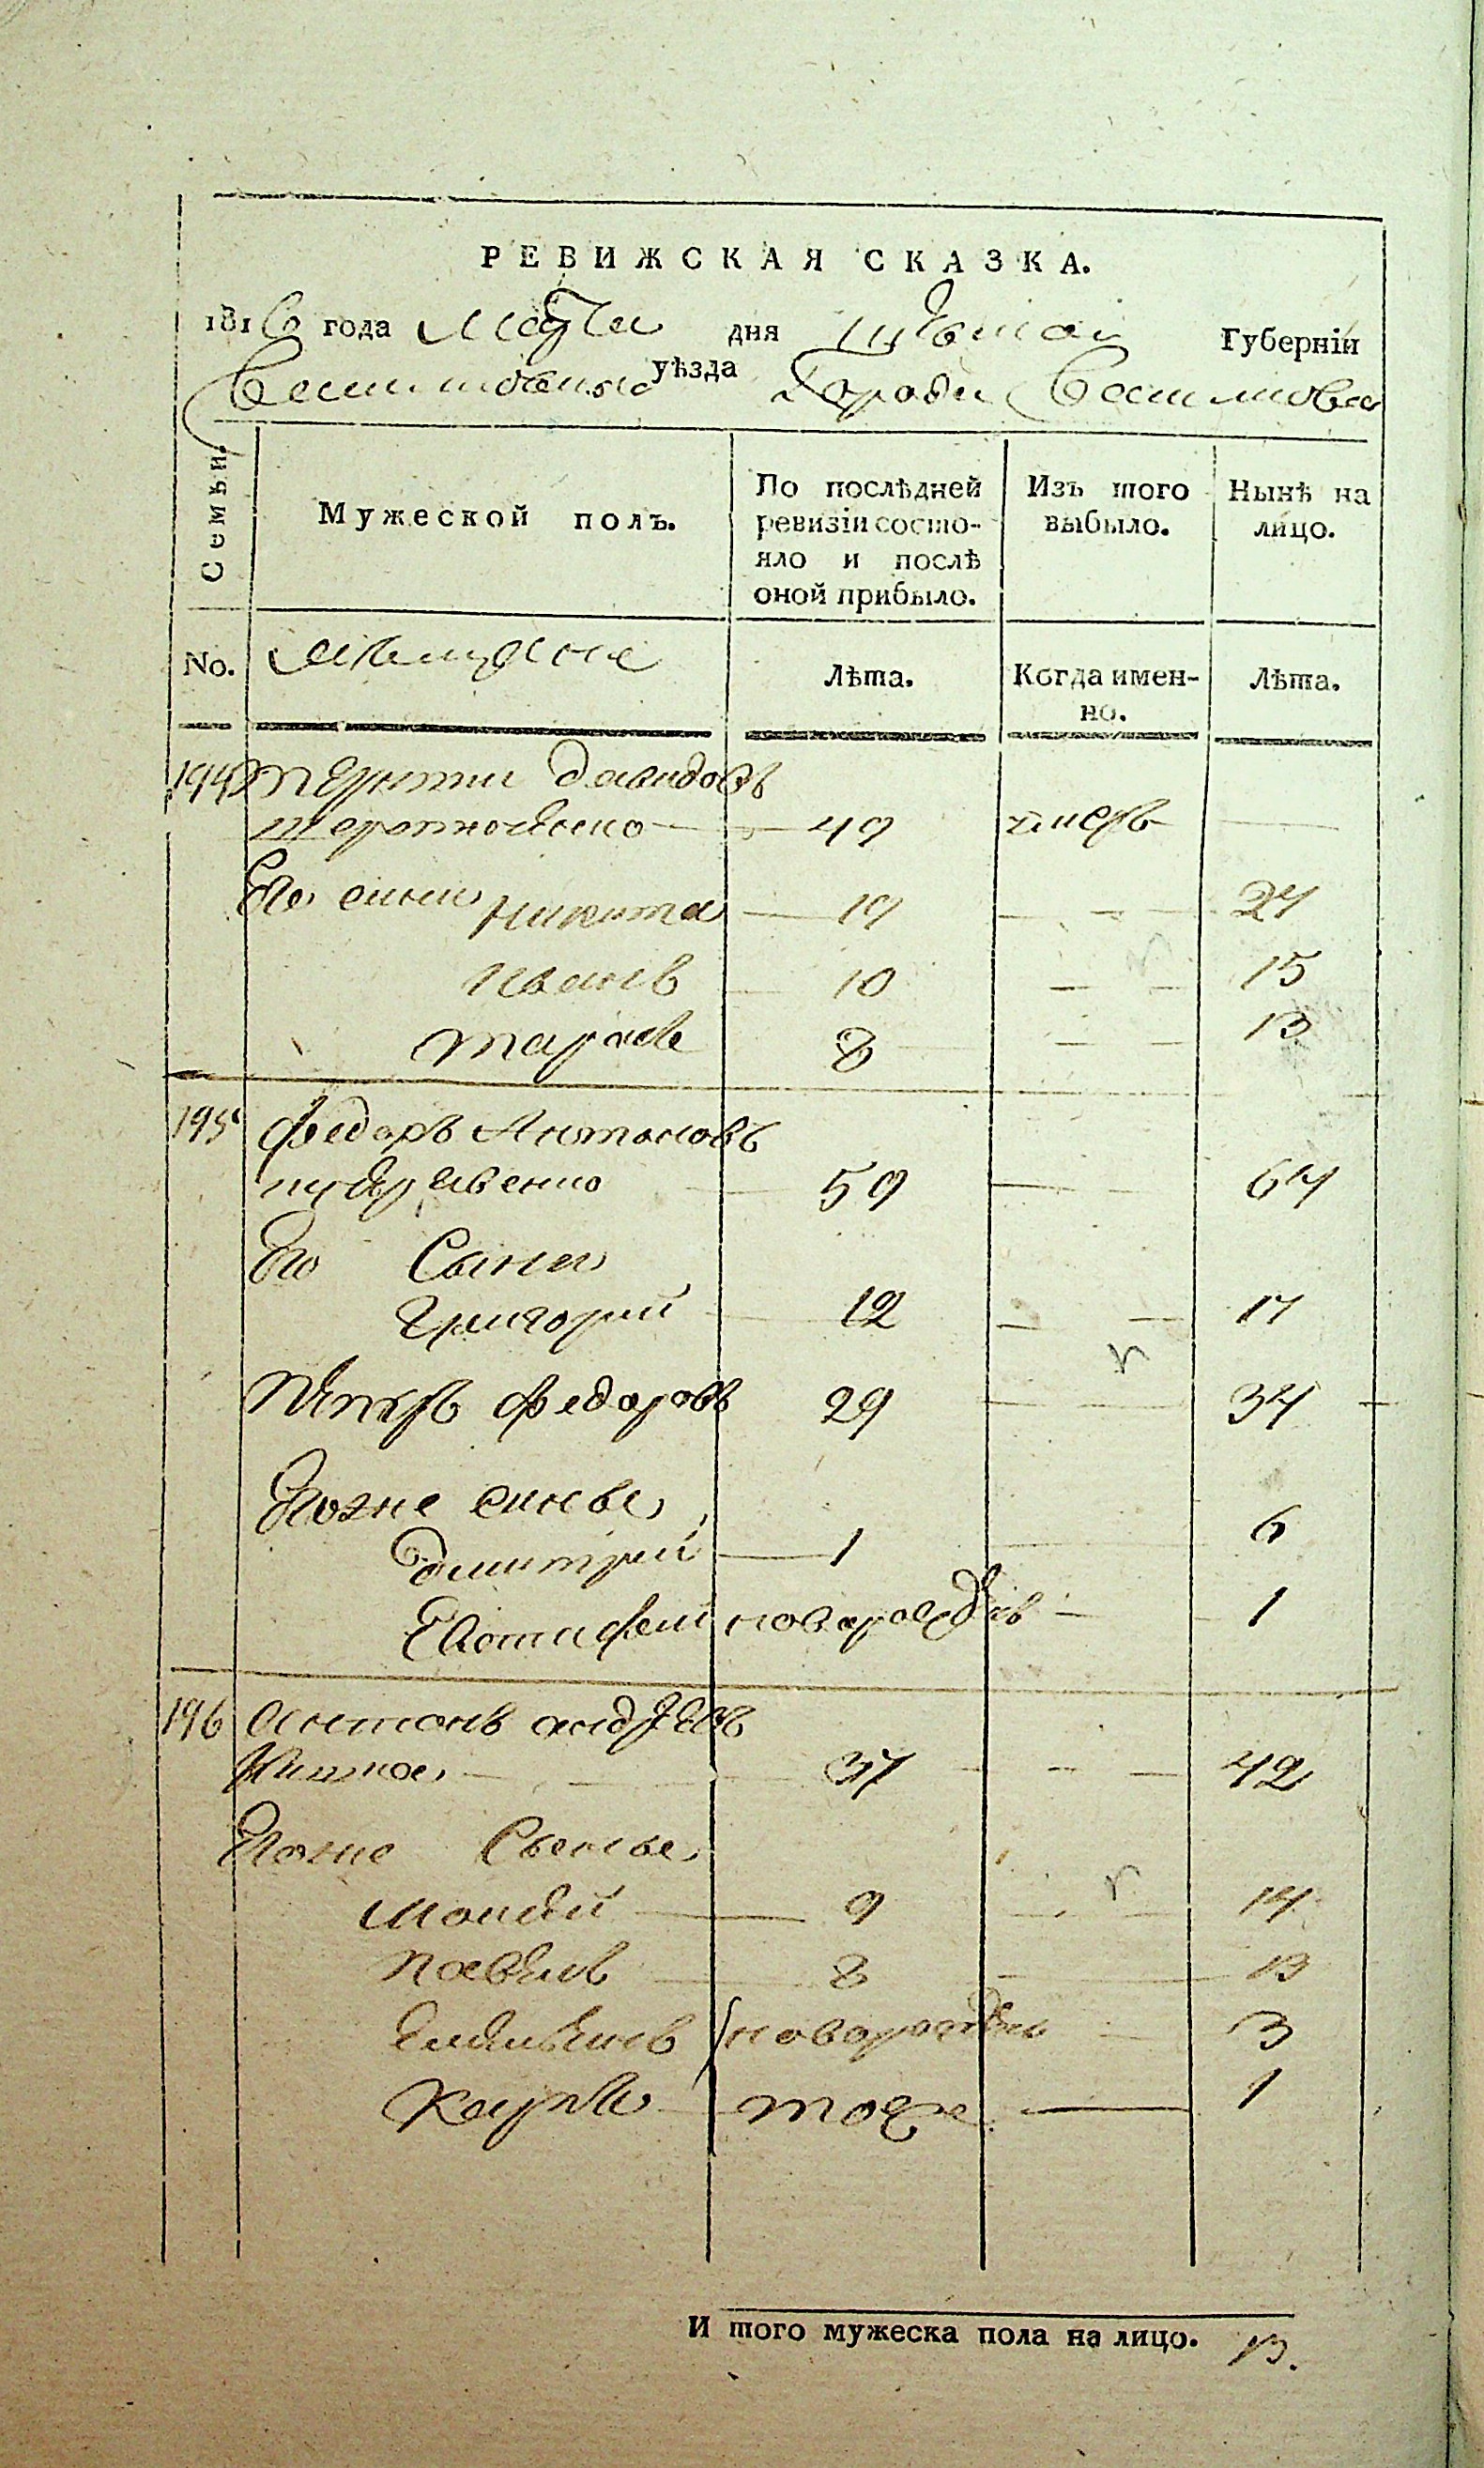 РЕВИЖСКАЯ СКАЗКА.
1816 года Марта дня Губерніи
уѣзда Города
Семьи. Мужеской полъ. По послѣдней ревизіи состояло и послѣ оной прибыло. Изъ того выбыло. Нынѣ на лицо.
No. Мещане Лѣта. Когда именно. Лѣта.
194 Терентий Давидовъ
49 умеръ
Его сыни Никита 19 24
Иванъ 10 15
Тарасъ 8 13
195 Федоръ Антоновъ
59 64
Его Сыни
Григорий 12 17
Петръ Федоровъ 29 34
Егоже синве
Дмитрий 1 6
Евстафей новорожденъ 1
196 Антонъ Андреевъ
37 42
Егоже Сынве
Моисей 9 14
Павелъ 8 13
Емельянъ новорожденъ 3
Карпъ тоже 1
И того мужеска пола на лицо. 13.